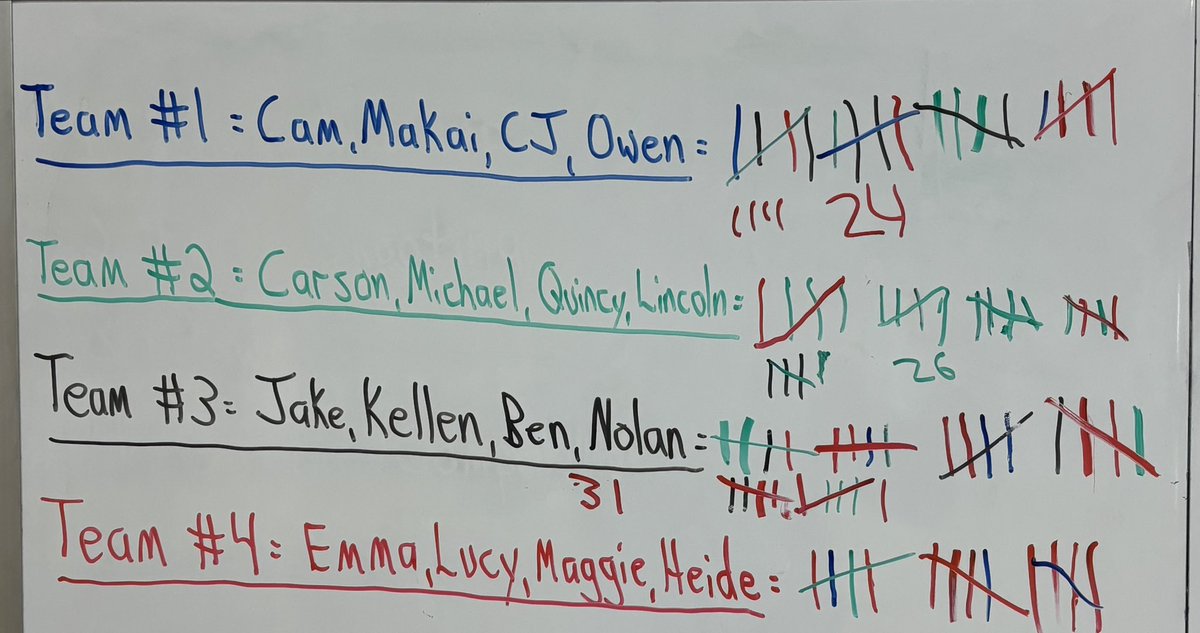 Team #1 = Cam, Makai, CJ, Owen =
24
Team #2 = Carson, Michael, Quincy, Lincoln =
26
Team #3 = Jake, Kellen, Ben, Nolan =
31
Team #4 = Emma, Lucy, Maggie, Heide =